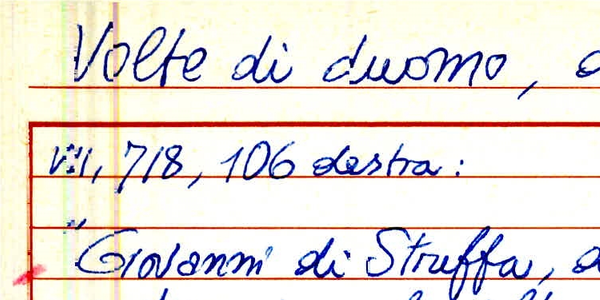 Volte di duomo,
VII, 718, 106 destra:
"Giovanni di Struffa,